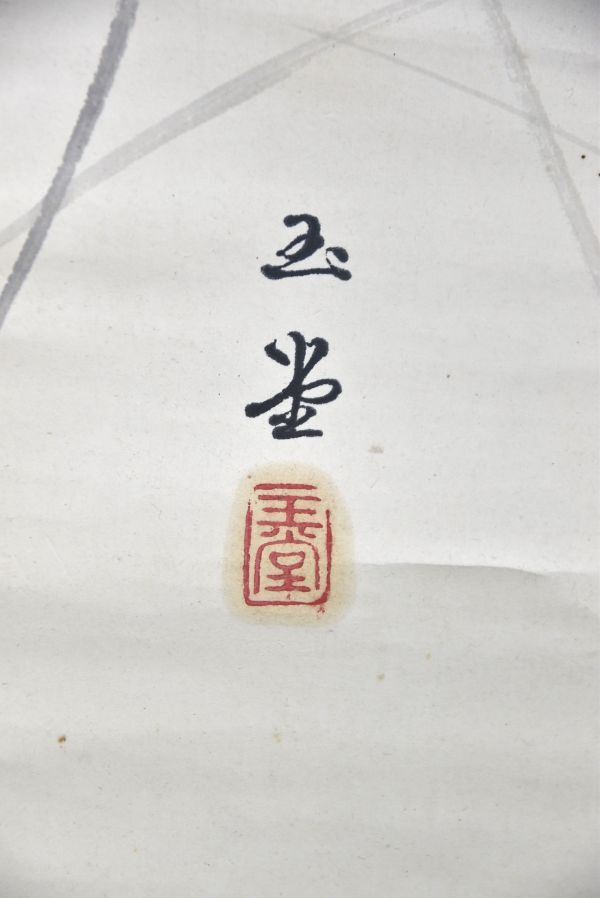 玉堂
玉堂